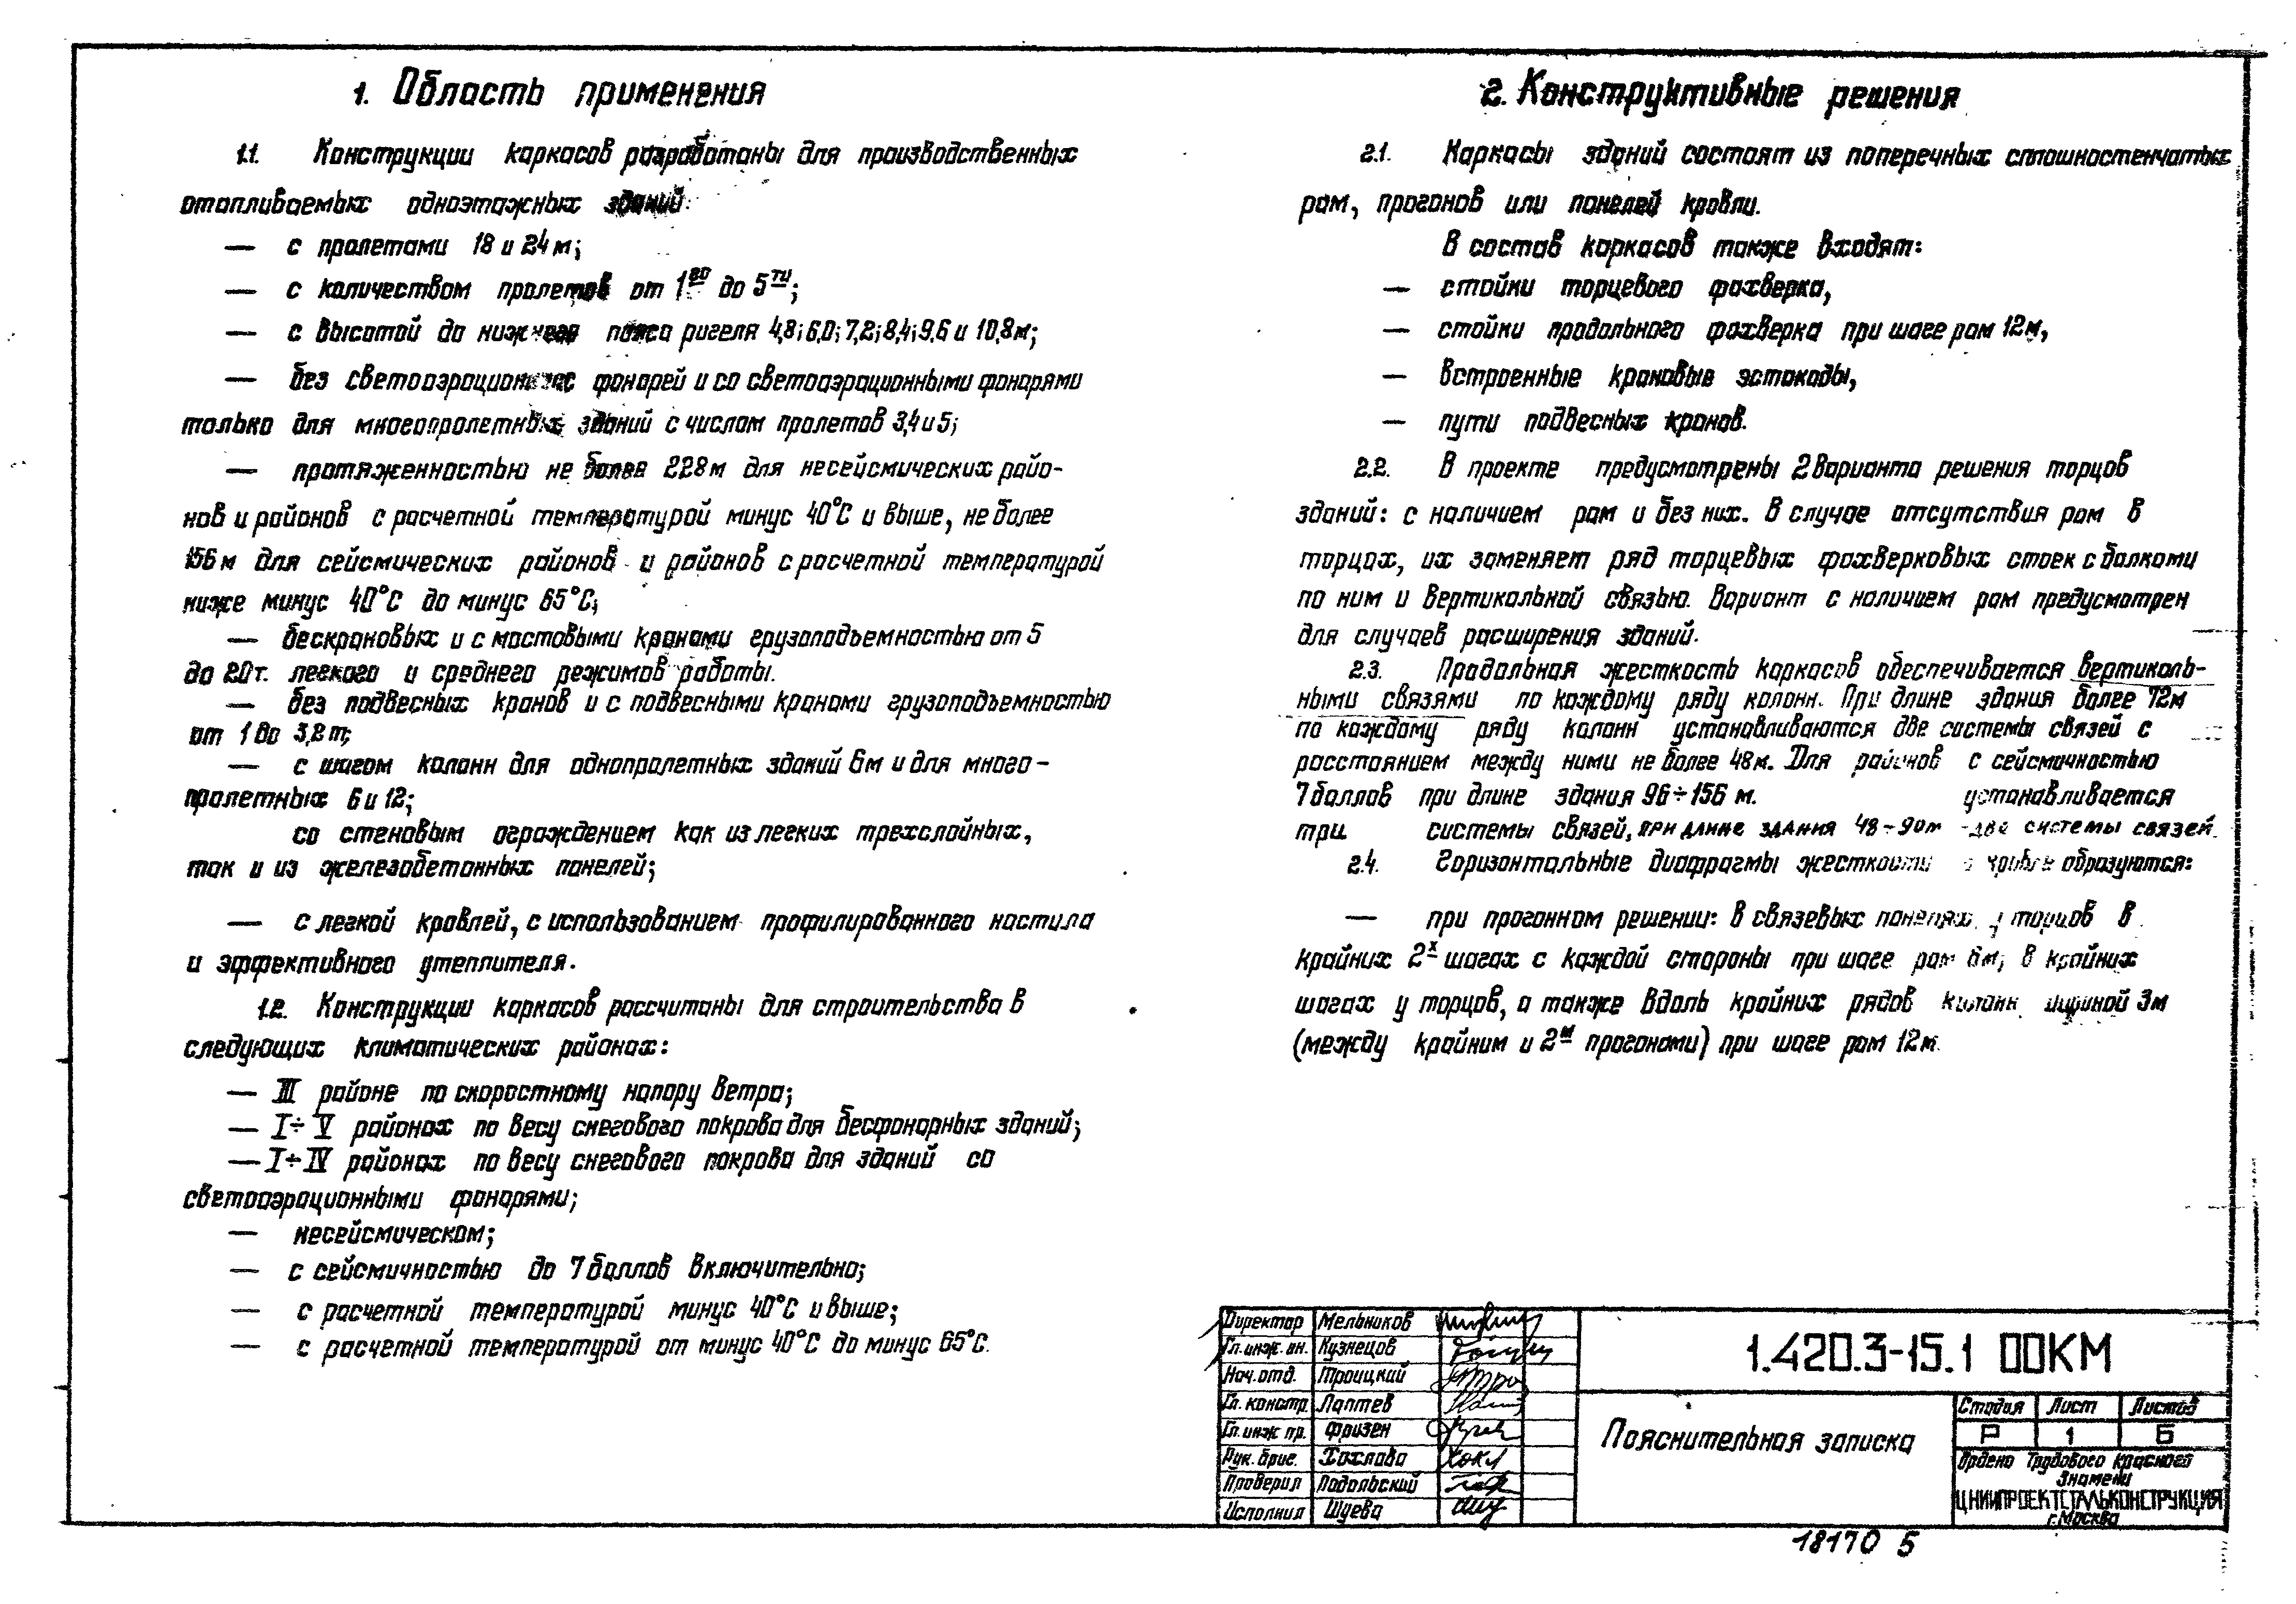 1. Область применения
1.1. Конструкции каркасов разработаны для производственных
отапливаемых одноэтажных зданий:
— с пролетами 18 и 24 м;
— с количеством пролетов от 1го до 5ти;
— с высотой до нижнего пояса ригеля 4,8; 6,0; 7,2; 8,4; 9,6 и 10,8 м;
— без светоаэрационных фонарей и со светоаэрационными фонарями
только для многопролетных зданий с числом пролетов 3,4 и 5;
— протяженностью не более 228 м для несейсмических райо-
нов и районов с расчетной температурой минус 40°С и выше, не более
156 м для сейсмических районов и районов с расчетной температурой
ниже минус 40°С до минус 65°С;
— бескрановых и с мостовыми кранами грузоподъемностью от 5
до 20 т. легкого и среднего режимов работы.
— без подвесных кранов и с подвесными кранами грузоподъемностью
от 1 до 3,2 т;
— с шагом колонн для однопролетных зданий 6 м и для много-
пролетных 6 и 12;
со стеновым ограждением как из легких трехслойных,
так и из железобетонных панелей;
— с легкой кровлей, с использованием профилированного настила
и эффективного утеплителя.
1.2. Конструкции каркасов рассчитаны для строительства в
следующих климатических районах:
— III районе по скоростному напору ветра;
— I÷V районах по весу снегового покрова для бесфонарных зданий;
— I÷IV районах по весу снегового покрова для зданий со
светоаэрационными фонарями;
— несейсмическом;
— с сейсмичностью до 7 баллов включительно;
— с расчетной температурой минус 40°С и выше;
— с расчетной температурой от минус 40°С до минус 65°С.
2. Конструктивные решения
2.1. Каркасы зданий состоят из поперечных сплошностенчатых
рам, прогонов или панелей кровли.
В состав каркасов также входят:
— стойки торцевого фахверка,
— стойки продольного фахверка при шаге рам 12 м,
— встроенные крановые эстакады,
— пути подвесных кранов.
2.2. В проекте предусмотрены 2 варианта решения торцов
зданий: с наличием рам и без них. В случае отсутствия рам в
торцах, их заменяет ряд торцевых фахверковых стоек с балками
по ним и вертикальной связью. Вариант с наличием рам предусмотрен
для случаев расширения зданий.
2.3. Продольная жесткость каркасов обеспечивается вертикаль-
ными связями по каждому ряду колонн. При длине здания более 72 м
по каждому ряду колонн устанавливаются две системы связей с
расстоянием между ними не более 48 м. Для районов с сейсмичностью
7 баллов при длине здания 96÷156 м. устанавливается
три системы связей, при длине здания 48-90м - две системы связей.
2.4. Горизонтальные диафрагмы жесткости в кровле образуются:
— при прогонном решении: в связевых панелях у торцов в
крайних 2х шагах с каждой стороны при шаге рам 6 м; в крайних
шагах у торцов, а также вдоль крайних рядов колонн шириной 3 м
(между крайним и 2м прогонами) при шаге рам 12 м.
Директор Мельников
Гл. инж. ин. Кузнецов
Нач. отд. Троицкий
Гл. констр. Лаптев
Гл. инж. пр. Фризен
Рук. бриг. Хохлова
Проверил Подольский
Исполнил Шуева
1.420.3-15.1 00КМ
Пояснительная записка
Стадия Лист Листов
Р 1 6
Ордена Трудового Красного
Знамени
ЦНИИПРОЕКТСТАЛЬКОНСТРУКЦИЯ
г. Москва
18170 5